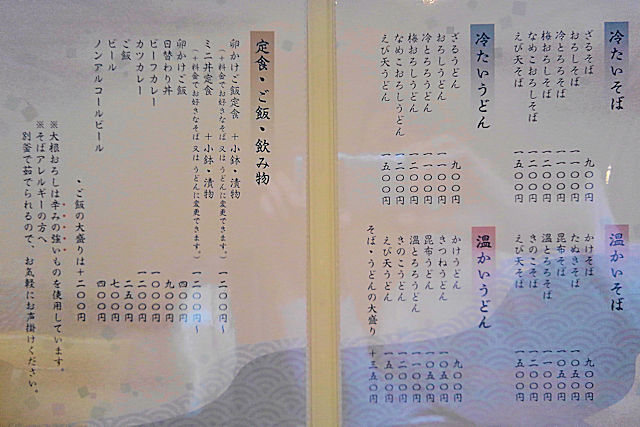 冷たいそば
ざるそば 九〇〇円
おろしそば 一一〇〇円
冷とろろそば 一一〇〇円
梅おろしそば 一二〇〇円
なめこおろしそば 一二〇〇円
えび天そば 一五〇〇円
冷たいうどん
ざるうどん 九〇〇円
おろしうどん 一一〇〇円
冷とろろうどん 一一〇〇円
梅おろしうどん 一二〇〇円
なめこおろしうどん 一二〇〇円
えび天うどん 一五〇〇円
温かいそば
かけそば 九〇〇円
たぬきそば 一〇五〇円
昆布そば 一〇五〇円
温とろろそば 一一〇〇円
きのこそば 一二〇〇円
えび天そば 一五〇〇円
温かいうどん
かけうどん 九〇〇円
きつねうどん 一〇五〇円
昆布うどん 一〇五〇円
温とろろうどん 一一〇〇円
きのこうどん 一二〇〇円
えび天うどん 一五〇〇円
そば・うどんの大盛り ＋三五〇円
定食・ご飯・飲み物
卵かけご飯定食 ＋小鉢・漬物 一二〇〇円～
（＋料金でお好きなそば 又は うどんに変更できます。）
ミニ丼定食 ＋小鉢・漬物 一二〇〇円～
（＋料金でお好きなそば 又は うどんに変更できます。）
卵かけご飯 四〇〇円
日替わり丼 九〇〇円
ビーフカレー 一〇〇〇円
カツカレー 一二〇〇円
ご飯 二五〇円
ビール 七〇〇円
ノンアルコールビール 四〇〇円
・ご飯の大盛りは＋二〇〇円
※大根おろしは辛みの強いものを使用しています。
※そばアレルギーの方へ
別釜で茹でられるので、お気軽にお声掛けください。